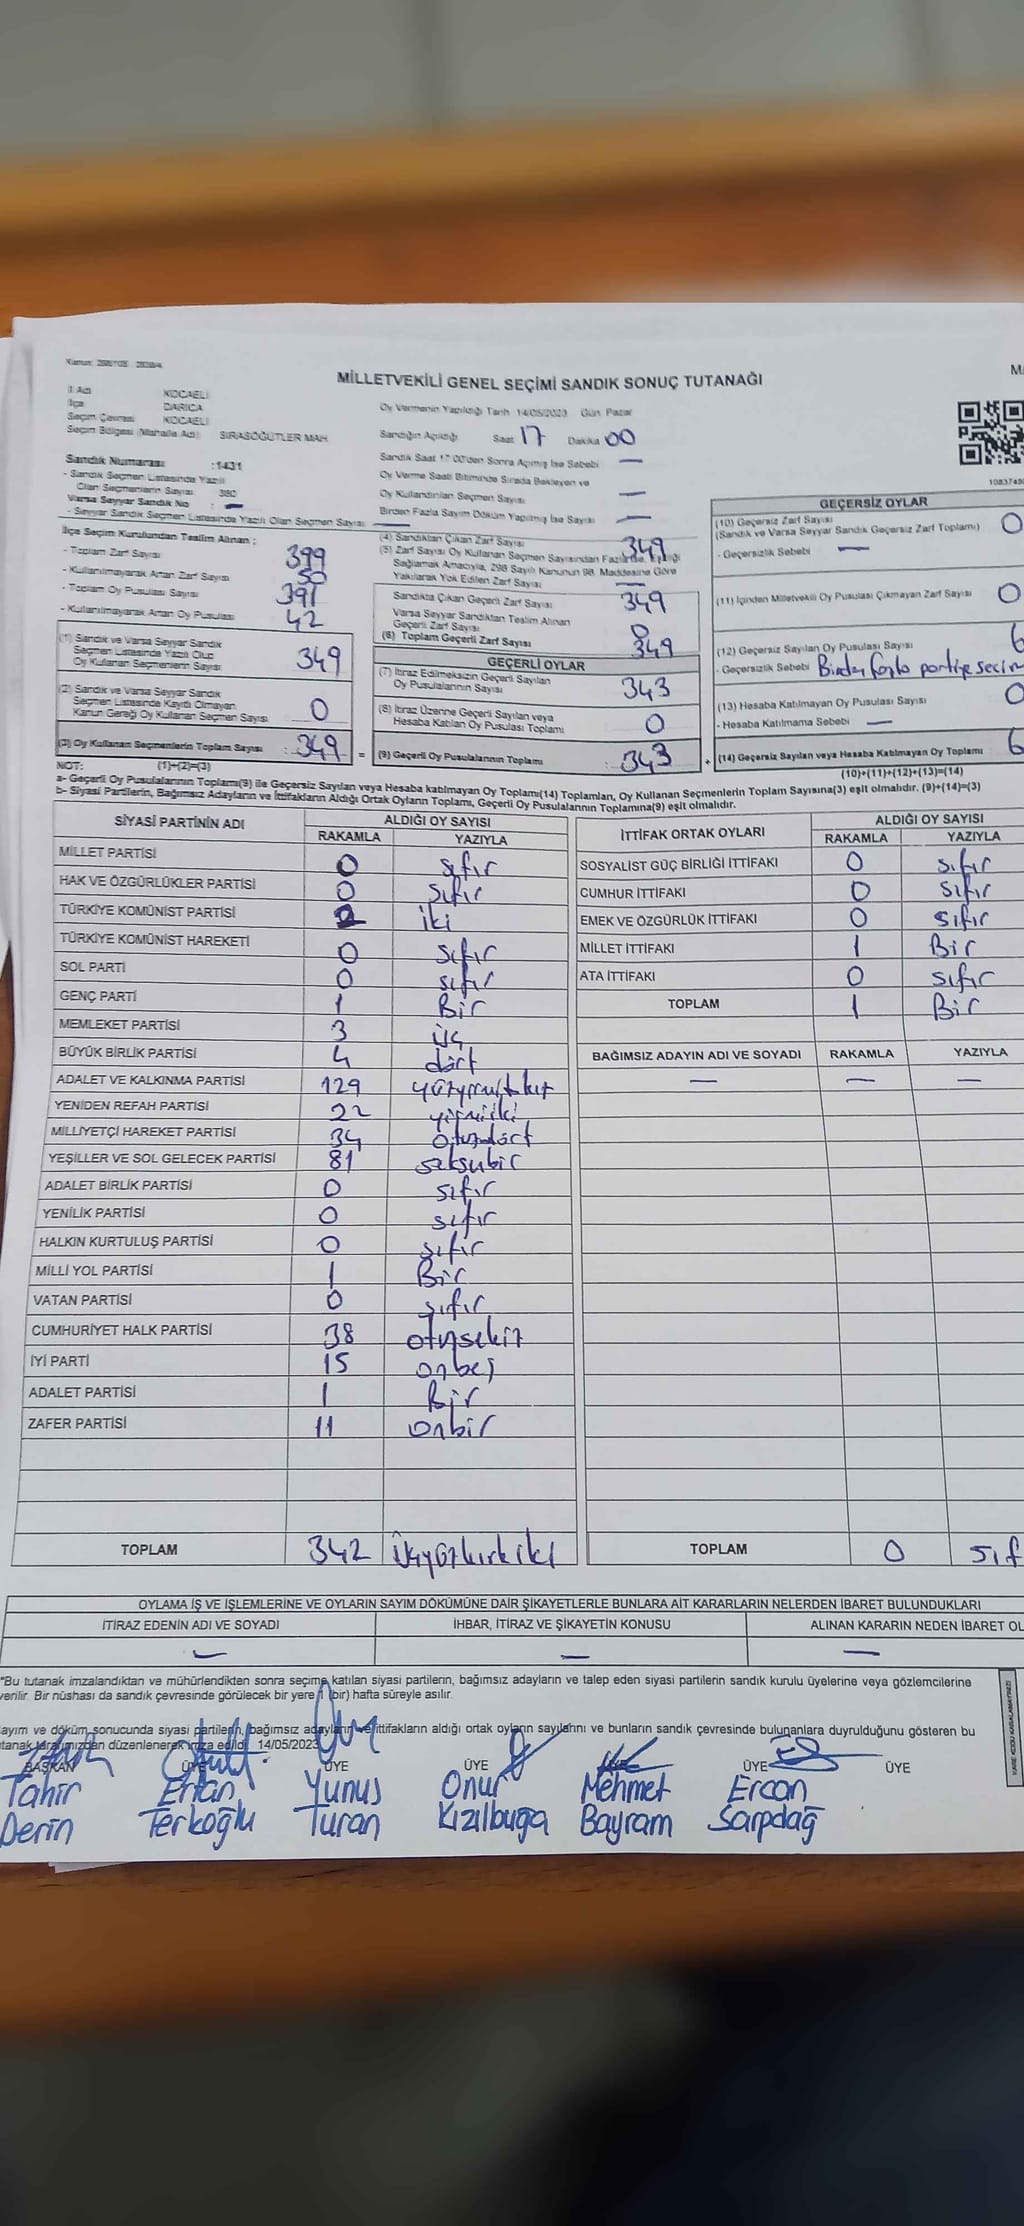 MİLLETVEKİLİ GENEL SEÇİMİ SANDIK SONUÇ TUTANAĞI
İl Adı KOCAELİ
İlçe DARICA
Seçim Çevresi KOCAELİ
Seçim Bölgesi (Mahalle Adı) SIRASÖĞÜTLER MAH
Sandık Numarası :1431
- Sandık Seçmen Listesinde Yazılı
Olan Seçmenlerin Sayısı
Varsa Seyyar Sandık No : —
- Seyyar Sandık Seçmen Listesinde Yazılı Olan Seçmen Sayısı —
Oy Vermenin Yapıldığı Tarih 14/05/2023 Gün Pazar
Sandığın Açıldığı Saat 17 Dakika 00
Sandık Saat 17:00'den Sonra Açımış İse Sebebi —
Oy Verme Saati Bitiminde Sırada Bekleyen ve
Oy Kullandırılan Seçmen Sayısı —
Birden Fazla Sayım Döküm Yapılmış İse Sayısı —
İlçe Seçim Kurulundan Teslim Alınan :
- Toplam Zarf Sayısı 399
- Kullanılmayarak Artan Zarf Sayısı 50
- Toplam Oy Pusulası Sayısı 391
- Kullanılmayarak Artan Oy Pusulası 42
(1) Sandık ve Varsa Seyyar Sandık
Seçmen Listesinde Yazılı Olup
Oy Kullanan Seçmenlerin Sayısı 349
(2) Sandık ve Varsa Seyyar Sandık
Seçmen Listesinde Kayıtlı Olmayan
Kanun Gereği Oy Kullanan Seçmen Sayısı 0
(3) Oy Kullanan Seçmenlerin Toplam Sayısı : 349
(4) Sandıktan Çıkan Zarf Sayısı 349
(5) Zarf Sayısı Oy Kullanan Seçmen Sayısından Fazla İse, Eşitliği
Sağlamak Amacıyla, 298 Sayılı Kanunun 98. Maddesine Göre
Yakılarak Yok Edilen Zarf Sayısı —
Sandıkta Çıkan Geçerli Zarf Sayısı 349
Varsa Seyyar Sandıktan Teslim Alınan
Geçerli Zarf Sayısı 0
(6) Toplam Geçerli Zarf Sayısı 349
GEÇERLİ OYLAR
(7) İtiraz Edilmeksizin Geçerli Sayılan
Oy Pusulalarının Sayısı 343
(8) İtiraz Üzerine Geçerli Sayılan veya
Hesaba Katılan Oy Pusulası Toplamı 0
= (9) Geçerli Oy Pusulalarının Toplamı : 343
GEÇERSİZ OYLAR
(10) Geçersiz Zarf Sayısı
(Sandık ve Varsa Seyyar Sandık Geçersiz Zarf Toplamı) 0
- Geçersizlik Sebebi —
(11) İçinden Milletvekili Oy Pusulası Çıkmayan Zarf Sayısı 0
(12) Geçersiz Sayılan Oy Pusulası Sayısı 6
- Geçersizlik Sebebi Birden fazla partiye seçim
(13) Hesaba Katılmayan Oy Pusulası Sayısı 0
- Hesaba Katılmama Sebebi —
+ (14) Geçersiz Sayılan veya Hesaba Katılmayan Oy Toplamı 6
NOT: (1)+(2)=(3) (10)+(11)+(12)+(13)=(14)
a- Geçerli Oy Pusulalarının Toplamı(9) ile Geçersiz Sayılan veya Hesaba katılmayan Oy Toplamı(14) Toplamları, Oy Kullanan Seçmenlerin Toplam Sayısına(3) eşit olmalıdır. (9)+(14)=(3)
b- Siyasi Partilerin, Bağımsız Adayların ve İttifakların Aldığı Ortak Oyların Toplamı, Geçerli Oy Pusulalarının Toplamına(9) eşit olmalıdır.
SİYASİ PARTİNİN ADI ALDIĞI OY SAYISI
RAKAMLA YAZIYLA
MİLLET PARTİSİ 0 sıfır
HAK VE ÖZGÜRLÜKLER PARTİSİ 0 sıfır
TÜRKİYE KOMÜNİST PARTİSİ 2 iki
TÜRKİYE KOMÜNİST HAREKETİ 0 sıfır
SOL PARTİ 0 sıfır
GENÇ PARTİ 1 Bir
MEMLEKET PARTİSİ 3 üç
BÜYÜK BİRLİK PARTİSİ 4 dört
ADALET VE KALKINMA PARTİSİ 129 yüzyirmidokuz
YENİDEN REFAH PARTİSİ 22 yirmiiki
MİLLİYETÇİ HAREKET PARTİSİ 34 otuzdört
YEŞİLLER VE SOL GELECEK PARTİSİ 81 seksenbir
ADALET BİRLİK PARTİSİ 0 sıfır
YENİLİK PARTİSİ 0 sıfır
HALKIN KURTULUŞ PARTİSİ 0 sıfır
MİLLİ YOL PARTİSİ 1 Bir
VATAN PARTİSİ 0 sıfır
CUMHURİYET HALK PARTİSİ 38 otuzsekiz
İYİ PARTİ 15 onbeş
ADALET PARTİSİ 1 Bir
ZAFER PARTİSİ 11 onbir
TOPLAM 342 üçyüzkırkiki
İTTİFAK ORTAK OYLARI ALDIĞI OY SAYISI
RAKAMLA YAZIYLA
SOSYALİST GÜÇ BİRLİĞİ İTTİFAKI 0 sıfır
CUMHUR İTTİFAKI 0 sıfır
EMEK VE ÖZGÜRLÜK İTTİFAKI 0 sıfır
MİLLET İTTİFAKI 1 Bir
ATA İTTİFAKI 0 sıfır
TOPLAM 1 Bir
BAĞIMSIZ ADAYIN ADI VE SOYADI RAKAMLA YAZIYLA
— — —
TOPLAM 0 sıf
OYLAMA İŞ VE İŞLEMLERİNE VE OYLARIN SAYIM DÖKÜMÜNE DAİR ŞİKAYETLERLE BUNLARA AİT KARARLARIN NELERDEN İBARET BULUNDUKLARI
İTİRAZ EDENİN ADI VE SOYADI İHBAR, İTİRAZ VE ŞİKAYETİN KONUSU ALINAN KARARIN NEDEN İBARET OL
— — —
"Bu tutanak imzalandıktan ve mühürlendikten sonra seçime katılan siyasi partilerin, bağımsız adayların ve talep eden siyasi partilerin sandık kurulu üyelerine veya gözlemcilerine
verilir. Bir nüshası da sandık çevresinde görülecek bir yere 1 (bir) hafta süreyle asılır.
ayım ve döküm sonucunda siyasi partilerin, bağımsız adayların ve ittifakların aldığı ortak oyların sayılarını ve bunların sandık çevresinde bulunanlara duyrulduğunu gösteren bu
tanak tarafımızdan düzenlenerek imza edildi. 14/05/2023
BAŞKAN ÜYE ÜYE ÜYE ÜYE ÜYE
Tahir Ertan Yunus Onur Mehmet Ercan
Derin Terkoğlu Turan Kızılbuğa Bayram Sarpdağ